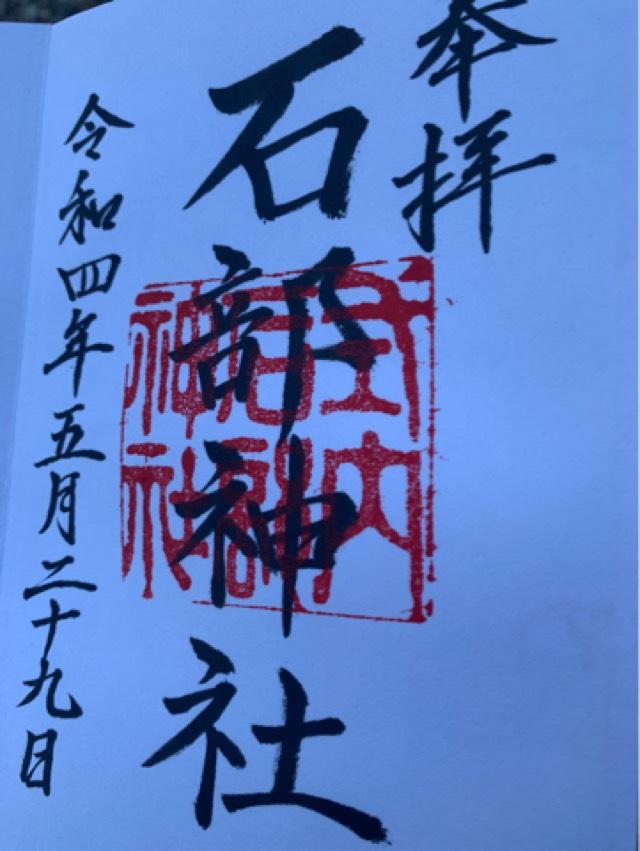 奉拝
石部神社
式内
石部
神社
令和四年五月二十九日